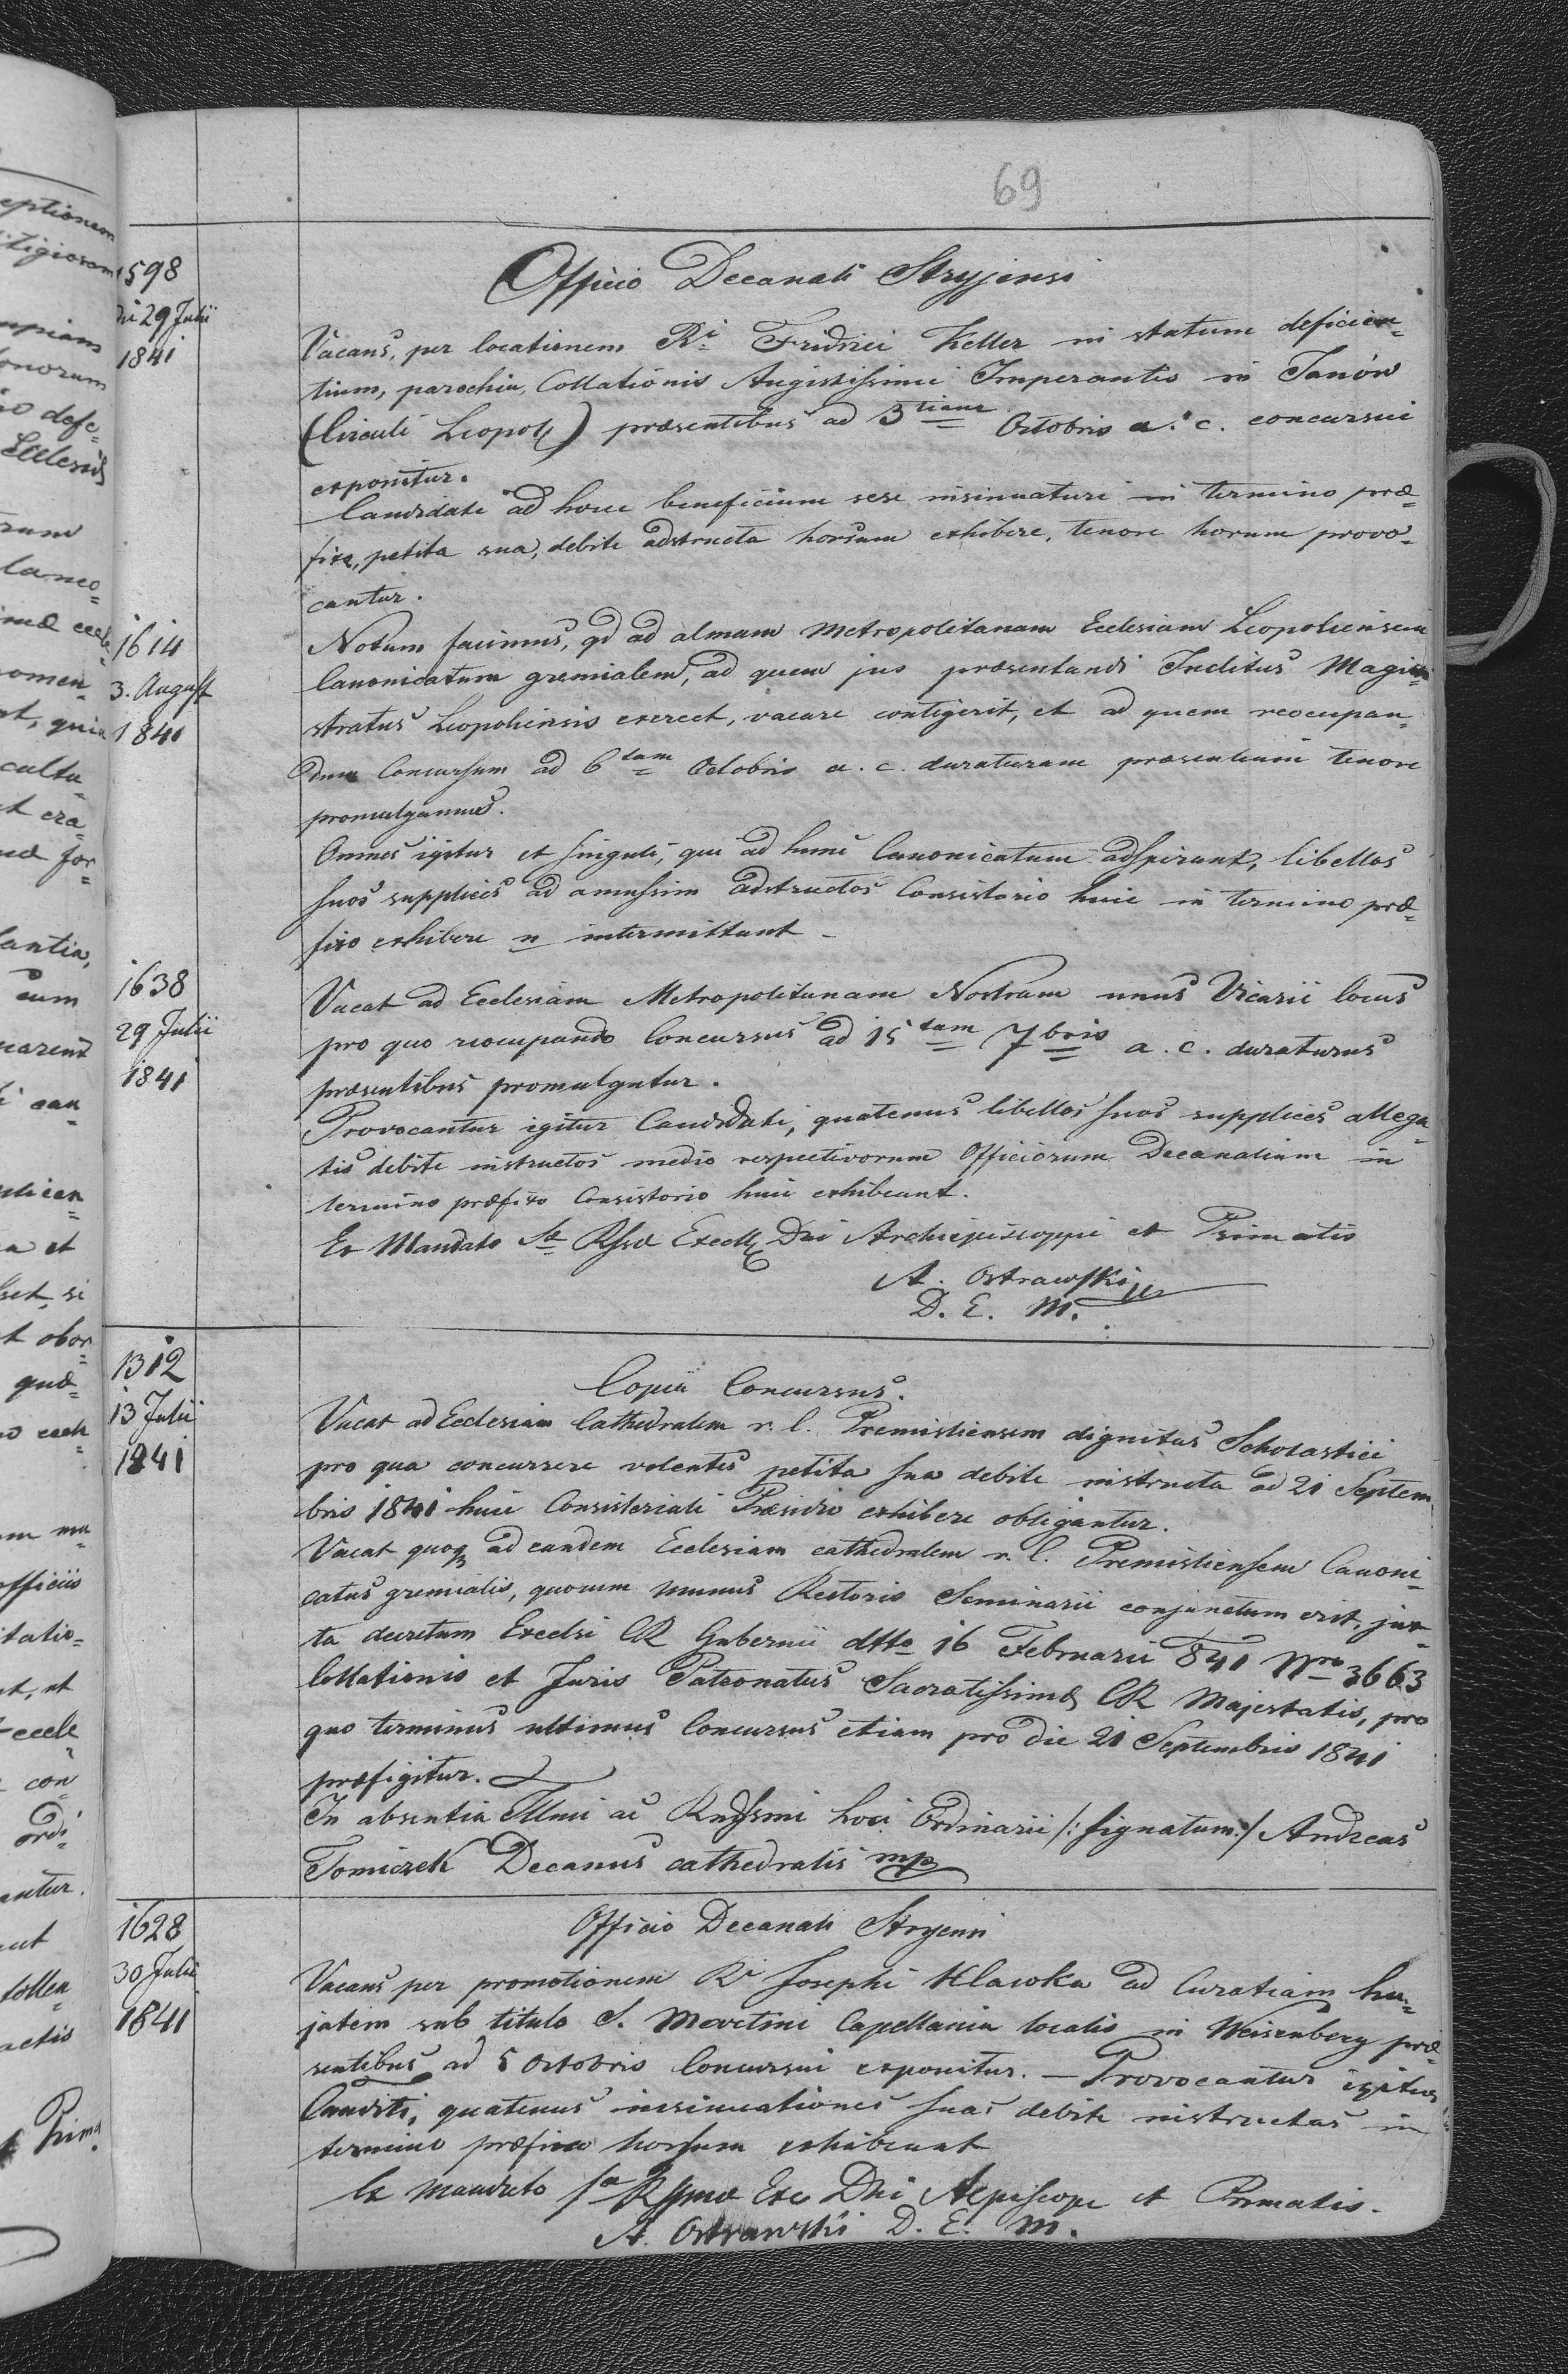 69
1598
die 29 Julii
1841
Officio Decanali Stryjensi
Vacans, per locationem Ri Fridrici Keller in statum deficien=
tium, parochia, Collationis Augistissimi Imperantis in Janów
(Circuli Leopol) præsentibus ad 3tiam Octobris a. c. concursui
exponitur.
Candidati ad hocce beneficium sese insinuaturi in termino præ=
fixo, petita sua, debite adstructa horsum exhibere, tenore horum provo=
cantur.
1614
3. August
1841
Notum facimus, qd ad almam Metropolitanam Ecclesiam Leopoliensem
Canonicatum gremialem, ad quem jus præsentandi Inclitus Magi=
stratus Leopoliensis exercet, vacare contigerit, et ad quem reocupan=
dum Concursum ad 6tam Octobris a. c. duraturam præsentium tenore
promulgamus.
Omnes igitur et singuli, qui ad hunc Canonicatum adspirant, libellos
suos supplices ad amussim adstructos Consistorio huic in termino præ=
fixo exhibere n intermittant –
1638
29 Julii
1841
Vacat ad Ecclesiam Metropolitanam Nostram unus Vicarii locus
pro quo reocupando Concursus ad 15tam 7bris a. c. duraturus
præsentibus promulgatur.
Provocantur igitur Candidati, quatenus libellos suos supplices allega=
tis debite instructos medio respectivorum Officiorum Decanalium in
termino præfixo Consistorio huic exhibeant.
Ex Mandato Sæ Rssæ Excell Dni Archiepiscoppi et Primatis
A. Ostrawski
D. E. M.
1312
13 Julii
1841
Copia Concursus.
Vacat ad Ecclesiam Cathedralem r. l. Premisliensem dignitas Scholastici
pro qua concurrere volentes petita sua debite instructa ad 21 Septem
bris 1841 huic Consistoriali Præsidio exhibere obligantur.
Vacat quoq ad eandem Ecclesiam cathedralem r. l. Premisliensem Canoni=
catus gremialis, quocum munus Rectoris Seminarii conjunctum erit, jux=
ta decretum Excelsi CR Gubernii dtto 16 Februarii 841 Nro 3663
Collationis et Juris Patronatus Sacratissimæ CR Majestatis, pro
quo terminus ultimus Concursus etiam pro die 21 Septembris 1841
præfigitur.
In absentia Illmi ac Rndssmi loci Ordinarii /: signatum :/ Andreas
Tomiczek Decanus cathedralis mp
1628
30 Julii
1841
Officio Decanali Stryensi
Vacans per promotionem Ri Josephi Hlawka ad Curatiam hu=
jatem sub titulo S. Martini Capellania localis in Weisenberg præ=
sentibus ad 5 Octobris Concursui exponitur. – Provocantur igitur
Canditi, quatenus insinuationes suas debite instructas in
termino præfixo horsum exhibeant
Ex mandato Sæ Rssmæ Exc Dni Aepiscopi et Primatis.
A. Ostrawski D. E. M.